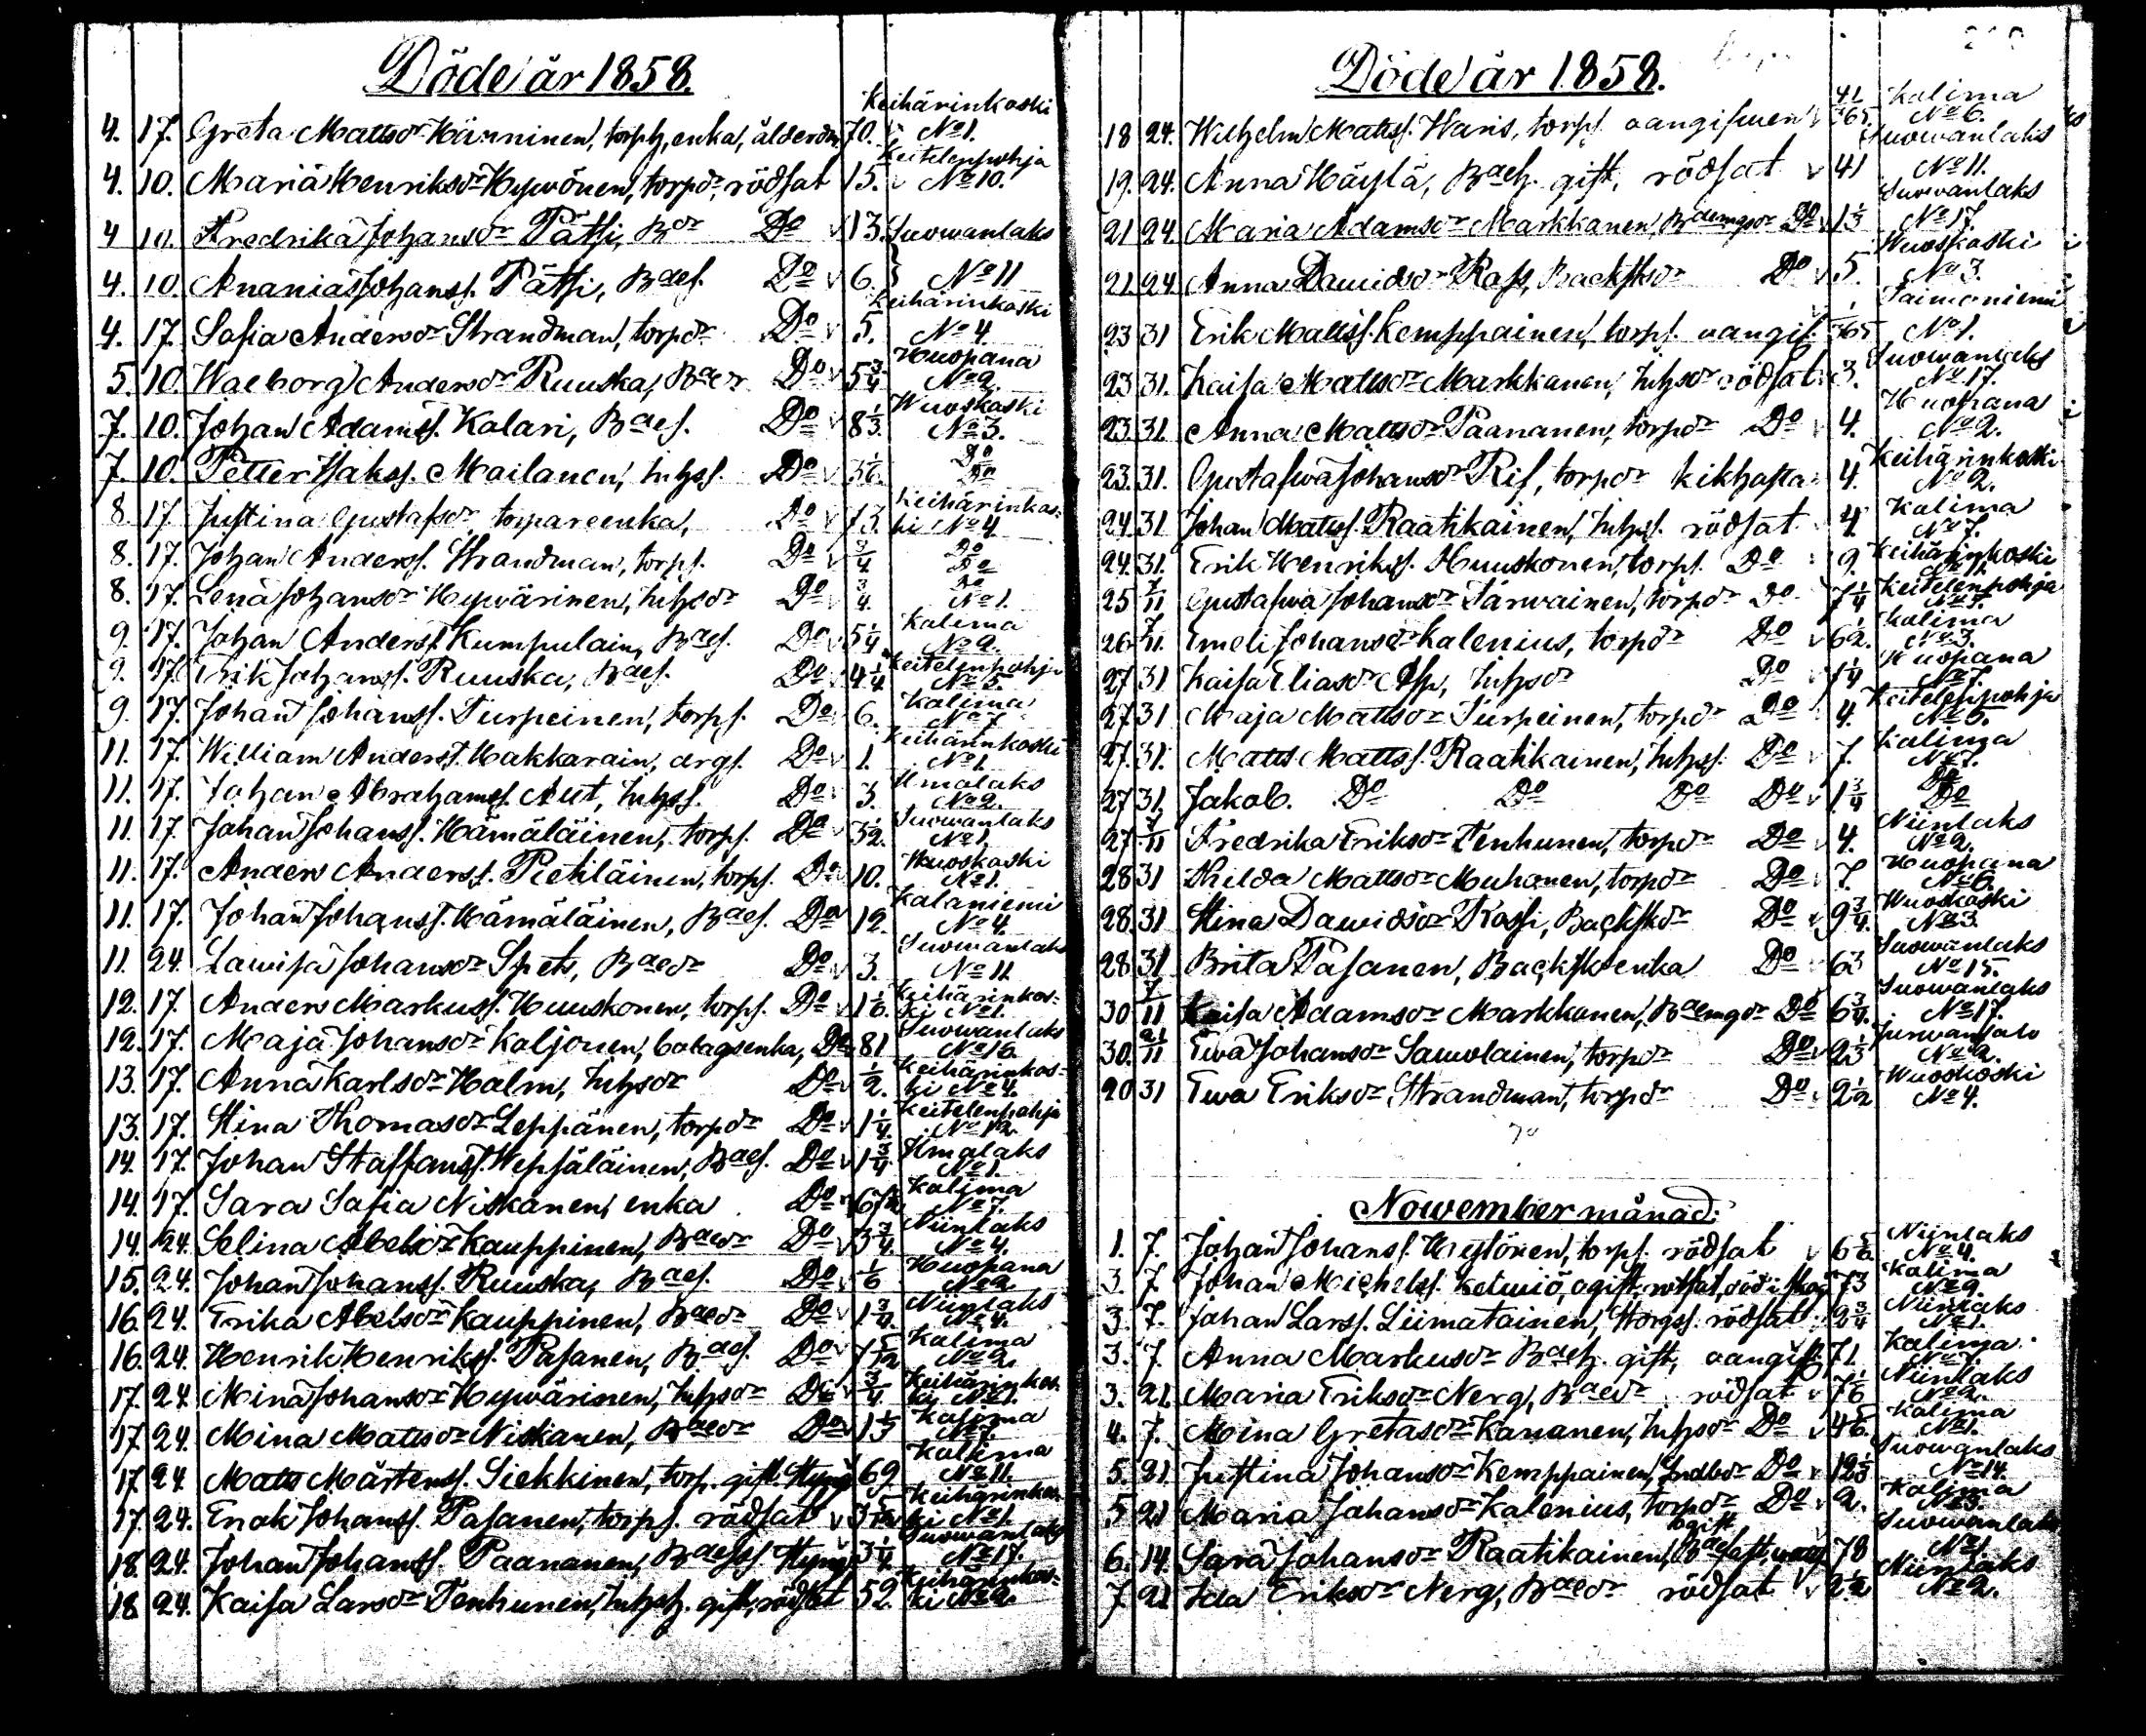 Döde år 1858.
4. 17. Greta Mattsdr Hänninen, torph, enka, ålderdm 70. Keihärinkoski No 1.
4. 10. Maria Henriksdr Hywönen, torpdr, rödsot 15. Keitelenpohja No 10.
4 10. Fredrika Johansdr Pätsi, Bdr Do 13. Suowanlaks
4. 10. Ananias Johanss. Pätsi, Baes. Do 6. No 11
4. 17. Sofia Andersdr Strandman, torpdr Do 5. Keihärinkoski No 4.
5. 10. Walborg Andersdr Ruuska, Baedr Do 5 3/4 Huopana No 2.
7. 10. Johan Adamss. Kalari, Baes. Do 8 1/3. Wuoskoski No 3.
7. 10. Petter Isakss. Mailanen, Inhyss. Do 3 1/6. Do Do
8. 17. Justina Gustafsdr, torpareenka, Do 73. Keihärinkos-ki No 4
8. 17. Johan Anderss. Strandman, torps. Do 3/4 Do Do
8. 17. Lena Johansdr Hywärinen, Inhysdr Do 3/4. Do No 1.
9. 17. Johan Anderss. Kumpulain, Baes. Do 5 1/4 Kalima No 2.
9. 17. Erik Johanss. Ruuska, Baes. Do 4 1/4. Keitelenpohja No 5.
9. 17. Johan Johanss. Turpeinen, torps. Do 6. Kalima No 7
11. 17. William Anderss. Hakkarain, args. Do 1. Keihärinkoski No 1.
11. 17. Johan Abrahamss. Aut, Inhyss. Do 3. Ilmolaks No 2.
11. 17. Johan Johanss. Hämäläinen, torps. Do 3 1/2. Suowanlaks No 1.
11. 17. Anders Anderss. Pietiläinen, torps. Do 10. Wuoskoski No 1.
11. 17. Johan Johanss. Hämäläinen, Baes. Do 12. Kalaniemi No 4.
11. 24. Lowisa Johansdr Spets, Baedr Do 3. Suowanlaks No 11.
12. 17. Anders Markuss. Huuskonen, torps. Do 1 1/6. Keihärinkos-ki No 1.
12. 17. Maja Johansdr Koljonen, bolagsenka, Do 81 Suowanlaks No 16
13. 17. Anna Karlsdr Halm, Inhysdr Do 1/2. Keihärinkos-ki No 4.
13. 17. Stina Thomasdr Leppänen, torpdr Do 1 1/4. Keitelenpohja No 12
14. 17. Johan Staffanss. Wepsäläinen, Baes. Do 1 3/4. Ilmolaks No 1.
14. 17. Sara Sofia Niskanen, enka Do 67 1/2 Kalima No 7.
14. 24. Selina Abelsdr Kauppinen, Baedr Do 3 3/4. Niinlaks No 4.
15. 24. Johan Johanss. Ruuska, Baes. Do 1/6 Huopana No 2
16. 24. Erika Abelsdr Kauppinen, Baedr Do 1 3/4. Niinlaks No 4.
16. 24. Henrik Henrikss. Pasanen, Baes. Do 1 5/12 Kalima No 2.
17. 24 Mina Johansdr Hywärinen, Inhysdr Do 3/4 Keihärinkos-ki No 1.
17 24. Mina Mattsdr Niskanen, Baedr Do 1 1/3 Kalima No 7.
17 24 Matts Mårtenss. Siekkinen, torp. gift. 69. Kalima No 11.
17. 24. Enok Johanss. Pasanen, torps. rödsot 3 5/12 Keihärinkos-ki No 1.
18. 24. Johan Johanss. Paananen, 3 1/4 Suowanlaks No 17.
18 24. Kaisa Larsdr Tenhunen, Inhysh. gift, rödsot 52. Keihärinkos-ki No 2.
Döde år 1858.
18 24. Wilhelm Mattss. Waris, torps. oangifwen 41/365. Kalima No 6.
19. 24. Anna Häylä, Baeh. gift, rödsot 41 Suowanlaks No 11.
21 24. Maria Adamsdr Markkanen, Do 1 1/3 Suowanlaks No 17.
21 24 Anna Dawidsdr Rass, Backstsdr Do 5. Wuoskoski No 3.
23 31 Erik Mattss. Kemppainen, torps. oangif. 1/365 Taimoniemi No 1.
23 31. Kaisa Mattsdr Markkanen, Inhysdr rödsot 3. Suowanlaks No 17.
23. 31. Anna Mattsdr Paananen, torpdr Do 4. Huopana No 2.
23. 31. Gustafwa Johansdr Rif, torpdr kikhosta 4. Keihärinkoski No 2.
24. 31 Johan Mattss. Raatikainen, Inhyss. rödsot 4. Kalima No 7.
24. 31. Erik Henrikss. Huuskonen, torps. Do 9. Keihärinkoski No 1.
25 7/11 Gustafwa Johansdr Tarwainen, torpdr Do 7 1/4 Keitelenpohja
26. 7/11. Emeli Johansdr Kalenius, torpdr Do 6 1/2. Kalima No 3.
27 31 Kaisa Eliasdr Asp, Inhysdr Do 1 1/4 Huopana No 7.
27 31 Maja Mattsdr Turpeinen, torpdr Do 4. Keitelenpohja No 5.
27. 31. Matts Mattss. Raatikainen, Inhyss. Do 7. Kalima No 7.
27 31. Jakob. Do Do Do Do 1 3/4 Do Do
27. 7/11 Fredrika Eriksdr Tenhunen, torpdr Do 4. Niinlaks No 2.
28 31 Hilda Mattsdr Muhonen, torpdr Do 7. Huopana No 6.
28. 31 Stina Dawidsdr Rass, Backstdr Do 9 3/4. Wuoskoski No 3.
28. 31 Brita Pasanen, Backstenka Do 63 Suowanlaks No 15.
30 7/11 Kaisa Adamsdr Markkanen, Do 6 3/4. Suowanlaks No 17.
30. 21/11 Ewa Johansdr Sawolainen, torpdr Do 2 1/3 No 2.
20 31 Ewa Eriksdr Strandman, torpdr Do 2 1/2 Wuoskoski No 4.
Nowember månad.
1. 7. Johan Johanss. Heylönen, torps. rödsot 6 5/6. Niinlaks No 4.
3. 7 Johan Michelss. Ketwiö, ogift, 73 Kalima No 9.
3. 7. Johan Larss. Liimatainen, rödsot 2 3/4 Niinlaks No 1.
3. 7 Anna Markusdr Baeh. gift, oangif. 71. Kalima No 7.
3. 21. Maria Eriksdr Nerg, Baedr rödsot 7 1/6 Niinlaks No 2.
4. 7. Mina Gretasdr Kananen, Inhysdr Do 4 5/6. Kalima No 1.
5. 21. Justina Johansdr Kemppainen, Do 12 2/3 Suowanlaks No 14.
5 21 Maria Johansdr Kalenius, torpdr Do 2. Kalima No 3.
6. 14. Sara Johansdr Raatikainen, ogift 78 Suowanlaks No 1.
7. 21 Ida Eriksdr Nerg, Baedr rödsot 2 1/2 Niinlaks No 2.